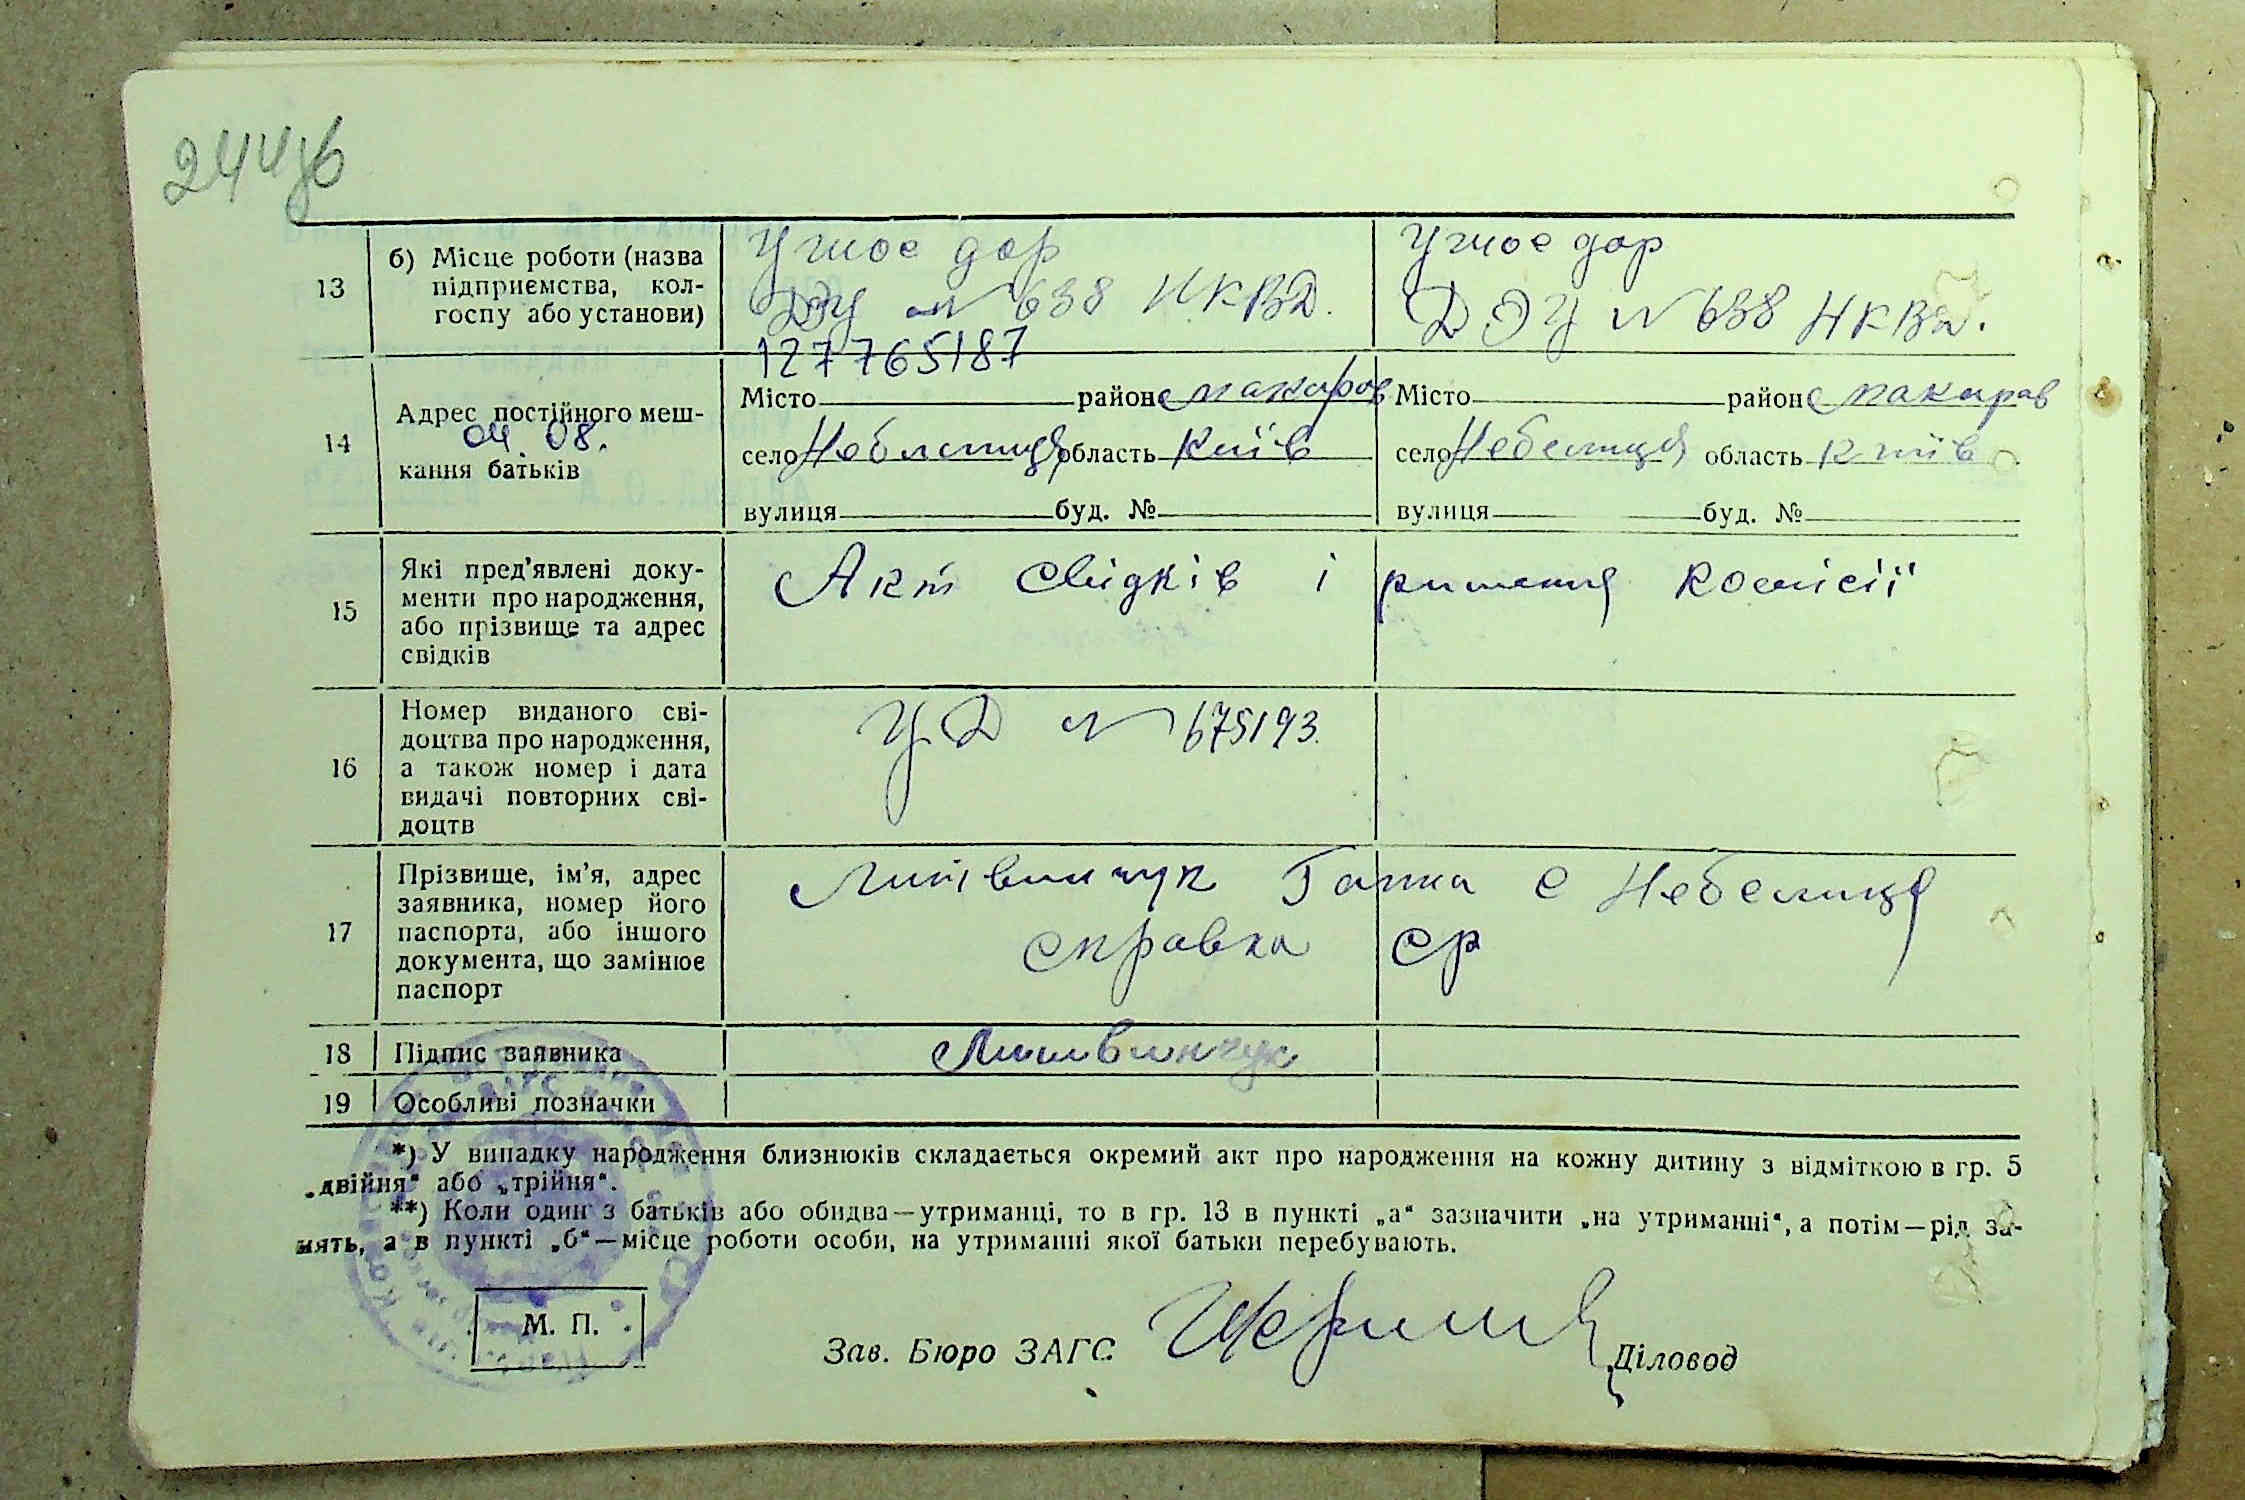 244зв
13 б) Місце роботи (назва підприємства, колгоспу або установи)
Ушос дор
ДЭУ № 638 НКВД.
Ушос дор
ДЭУ № 638 НКВД.
127765187
04.08.
14 Адрес постійного мешкання батьків
Місто район Макаров
село Небелиця область Київ
вулиця буд. №
Місто район Макаров
село Небелиця область Київ
вулиця буд. №
15 Які пред'явлені документи про народження, або прізвище та адрес свідків
Акт свідків і рішення комісії
16 Номер виданого свідоцтва про народження, а також номер і дата видачі повторних свідоцтв
УД № 675193.
17 Прізвище, ім'я, адрес заявника, номер його паспорта, або іншого документа, що замінює паспорт
Литвинчук Ганна с Небелиця
справка СР
18 Підпис заявника
Литвинчук
19 Особливі позначки
*) У випадку народження близнюків складається окремий акт про народження на кожну дитину з відміткою в гр. 5
„двійня“ або „трійня“.
**) Коли один з батьків або обидва—утриманці, то в гр. 13 в пункті „а“ зазначити „на утриманні“, а потім—рід за-
нять, а в пункті „б“—місце роботи особи, на утриманні якої батьки перебувають.
М. П.
Зав. Бюро ЗАГС
Діловод